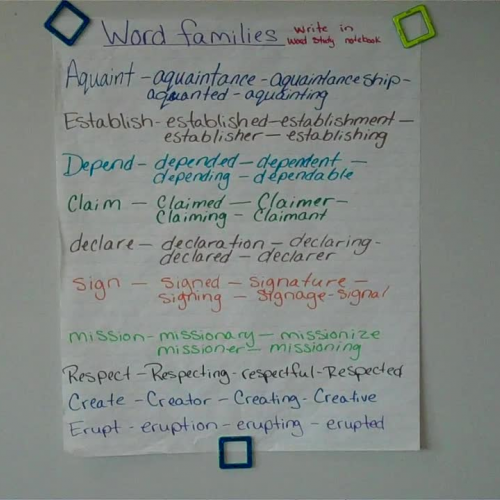 Word families
Write in
Word Study notebook
Aquaint - aquaintance - aquaintance ship -
aquanted - aquainting
Establish - established - establishment -
establisher - establishing
Depend - depended - dependent -
depending - dependable
Claim - Claimed - Claimer -
Claiming - Claimant
declare - declaration - declaring -
declared - declarer
Sign - signed - signature -
signing - signage - signal
mission - missionary - missionize
missioner - missioning
Respect - Respecting - respectful - Respected
Create - Creator - Creating - Creative
Erupt - eruption - erupting - erupted